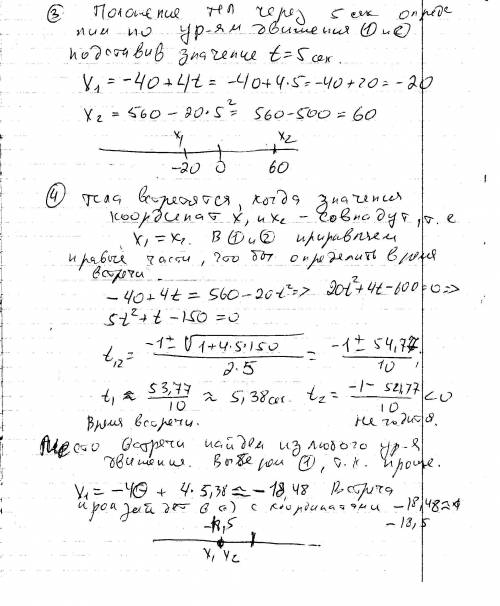 ③ Положение тел через 5 сек опреде
лим по ур-ям движения ① и ②
подставив значение t=5 сек.
X₁ = -40+4t = -40+4·5=-40+20=-20
X₂ = 560-20·5²= 560-500=60
X₁ X₂
-20 0 60
④ тела встретятся, когда значения
координат X₁ и X₂ - совпадут, т. е
X₁ = X₂. В ① и ② приравняем
правые части, что бы определить время
встречи.
-40+4t = 560-20t² => 20t²+4t-600=0 =>
5t²+t-150=0
t₁₂= (-1±√(1+4·5·150))/(2·5) = (-1±54,77)/10;
t₁≈ 53,77/10 ≈ 5,38 сек. t₂= (-1-54,77)/10 <0
Время встречи. не годится.
Место встречи найдем из любого ур-я
движения. Выберем ①, т. к. проще.
X₁= -40 + 4·5,38≈-18,48 Встреча
произойдет в с координатами -18,48≈
-18,5
-18,5
X₁ X₂